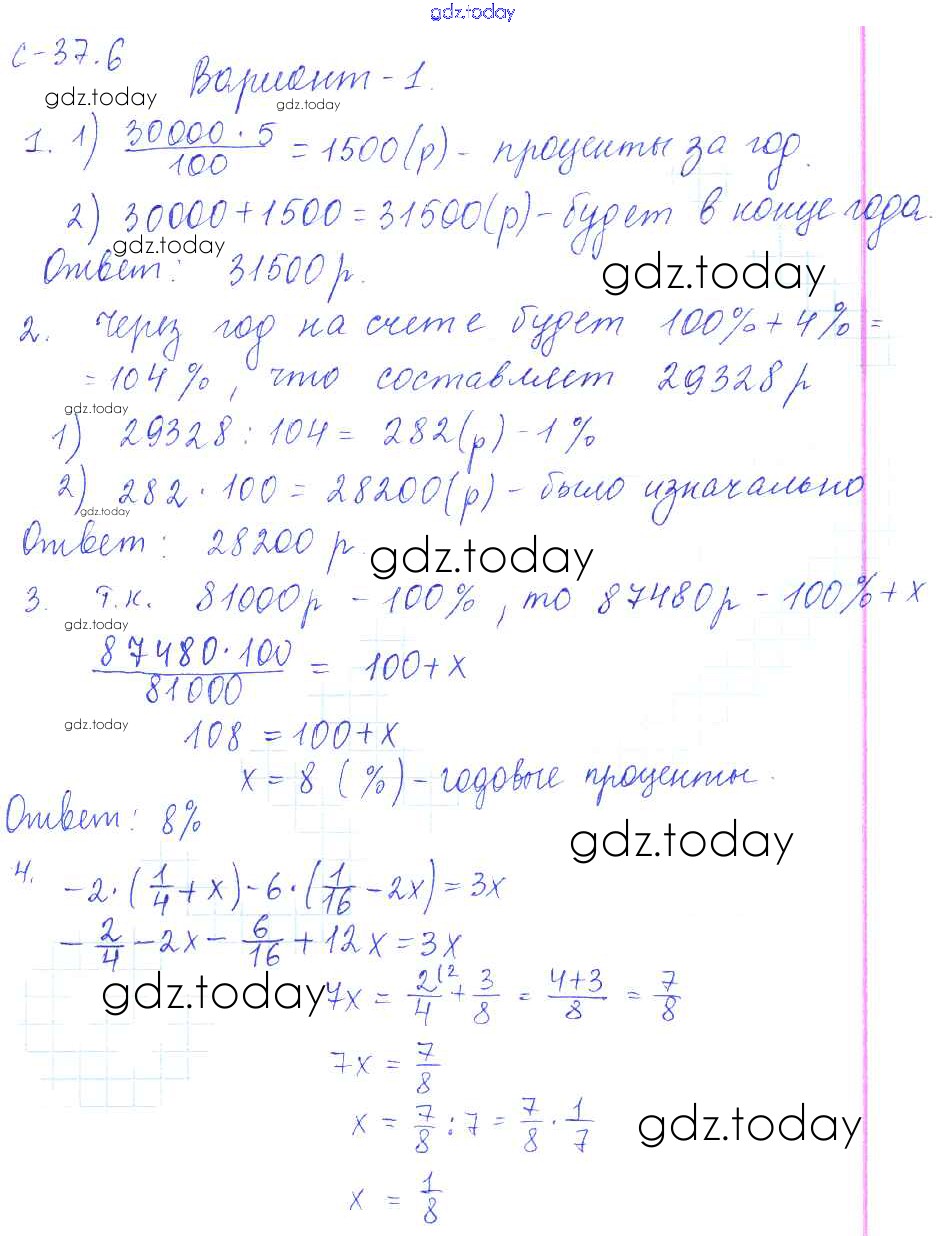 gdz.today
С-37.6
Вариант-1.
gdz.today
gdz.today
1. 1) 30000·5/100 = 1500(р) - проценты за год.
2) 30000+1500=31500(р)-будет в конце года.
gdz.today
Ответ: 31500 р.
gdz.today
2. Через год на счете будет 100%+4%=
=104%, что составляет 29328 р
gdz.today
1) 29328:104= 282(р)-1%
2) 282·100=28200(р)-было изначально
gdz.today
Ответ: 28200 р.
gdz.today
3. т.к. 81000р - 100%, то 87480р - 100%+x
gdz.today
87480·100/81000 = 100+x
gdz.today
108 = 100+x
x = 8 (%)-годовые проценты.
Ответ: 8%
gdz.today
4. -2·(1/4+x)-6·(1/16-2x)=3x
-2/4-2x-6/16+12x=3x
gdz.today
7x = 2(2/4 + 3/8 = 4+3/8 = 7/8
7x = 7/8
x = 7/8 : 7 = 7/8 · 1/7
gdz.today
x = 1/8